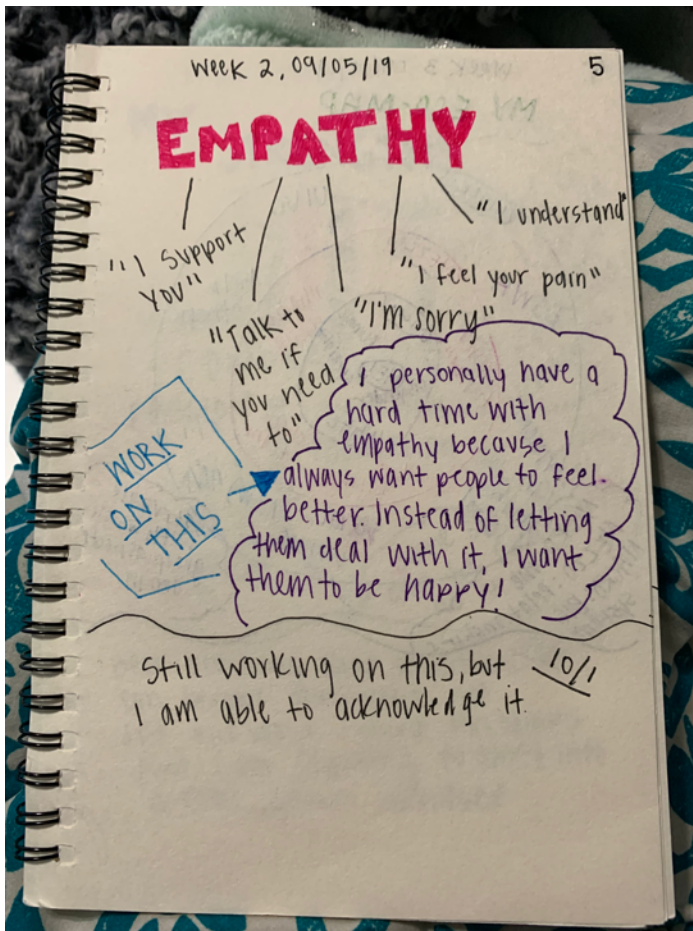 Week 2, 09/05/19
5
EMPATHY
"I support
you"
"Talk to
me if
you need
to"
"I'm sorry"
"I feel your pain"
"I understand"
WORK
ON
THIS
I personally have a
hard time with
empathy because I
always want people to feel
better. Instead of letting
them deal with it, I want
them to be happy!
Still working on this, but
I am able to acknowledge it.
10/1